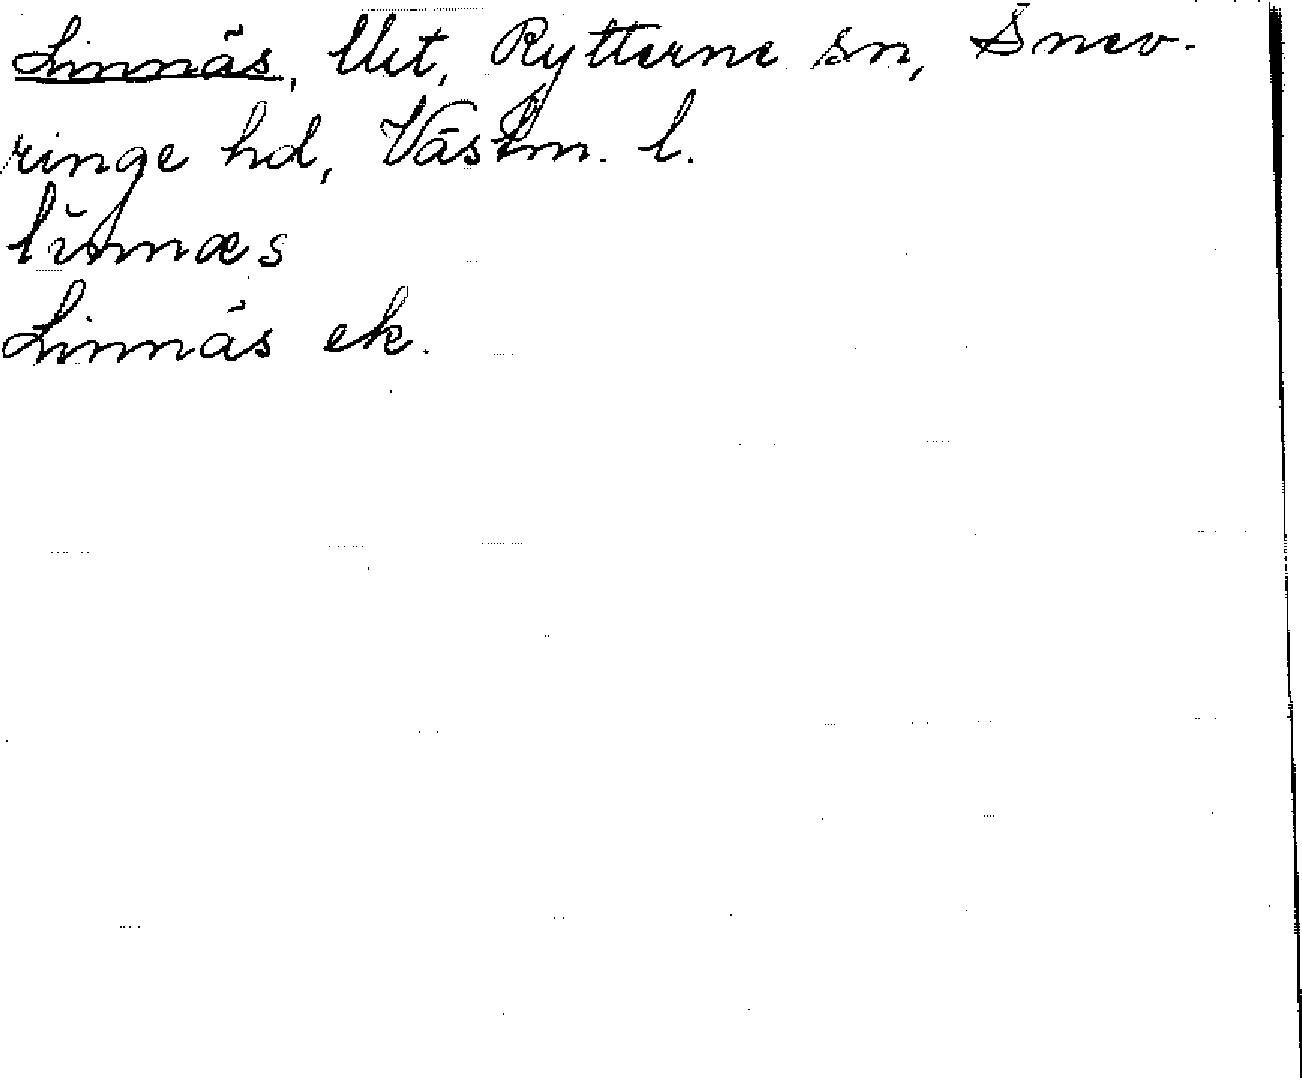 Linnäs, Utt, Rytterne sn, Snev-
ringe hd, Västm. l.
lĭnnæs
Linnäs ek.